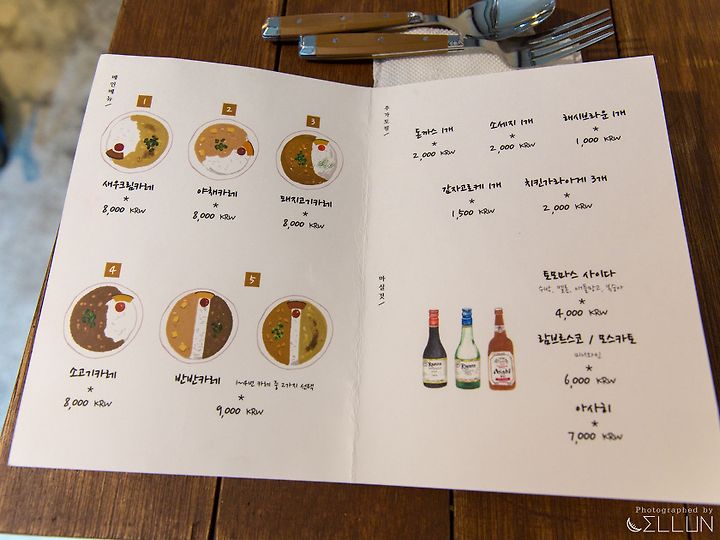 메인메뉴
1
새우크림카레
*
8,000 KRW
2
야채카레
*
8,000 KRW
3
돼지고기카레
*
8,000 KRW
4
소고기카레
*
8,000 KRW
5
반반카레 1~4번 카레 중 2가지 선택
*
9,000 KRW
추가토핑
돈까스 1개
*
2,000 KRW
소세지 1개
*
2,000 KRW
해시브라운 1개
*
1,000 KRW
감자고로케 1개
*
1,500 KRW
치킨가라아게 3개
*
2,000 KRW
마실것
토모마스 사이다
수박, 멜론, 애플망고, 복숭아
*
4,000 KRW
람브르스코 / 모스카토
미니와인
*
6,000 KRW
아사히
*
7,000 KRW
Asahi
Photographed by
CELLUN